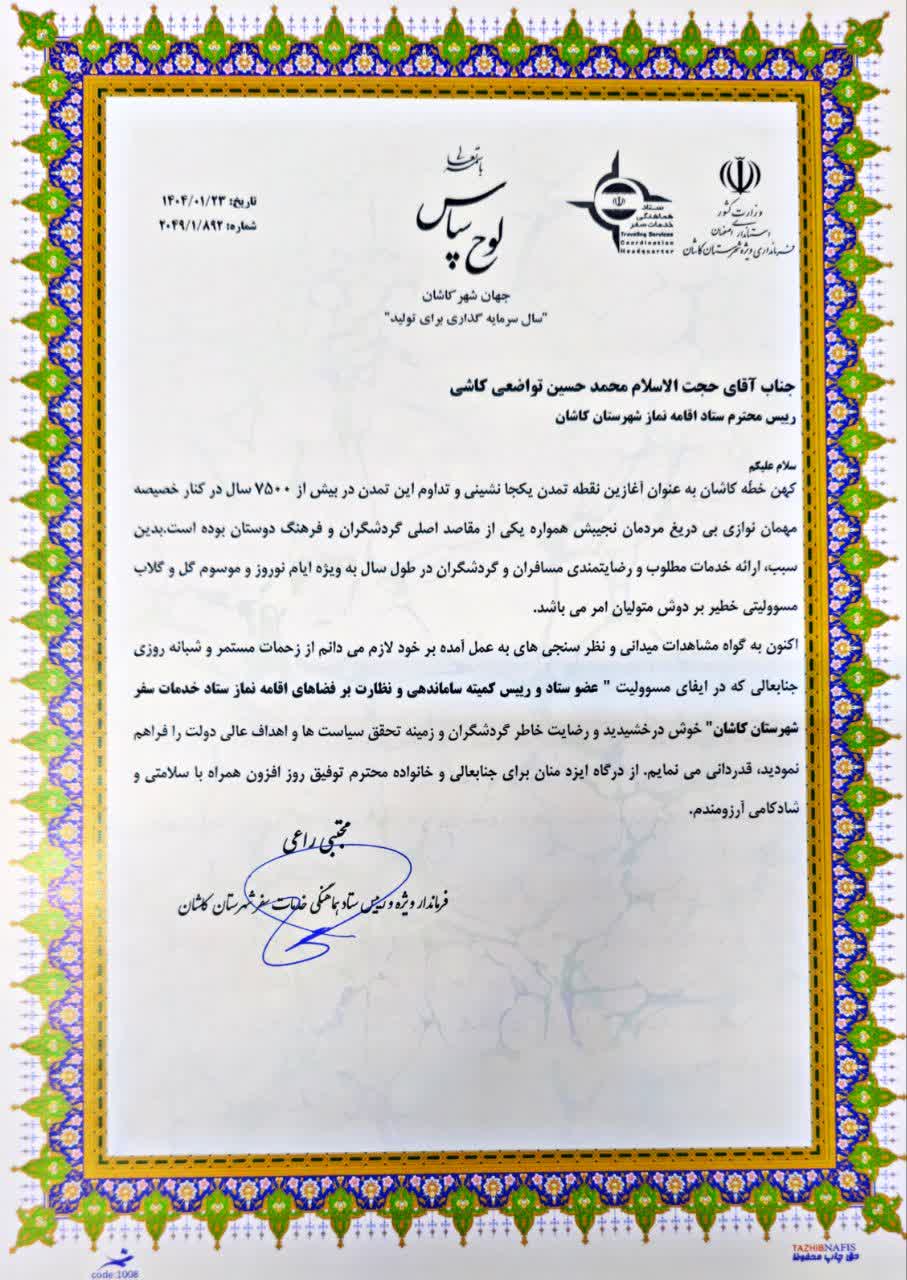 باسمه تعالی
لوح سپاس
جهان شهر کاشان
"سال سرمایه گذاری برای تولید"
وزارت کشور
استانداری اصفهان
فرمانداری ویژه شهرستان کاشان
ستاد
هماهنگی
خدمات سفر
Traveling Services
Coordination
Headquarter
تاریخ: ۱۴۰۴/۰۱/۲۳
شماره: ۲۰۴۹/۱/۸۹۲
جناب آقای حجت الاسلام محمد حسین تواضعی کاشی
رییس محترم ستاد اقامه نماز شهرستان کاشان
سلام علیکم
کهن خطّه کاشان به عنوان آغازین نقطه تمدن یکجا نشینی و تداوم این تمدن در بیش از ۷۵۰۰ سال در کنار خصیصه
مهمان نوازی بی دریغ مردمان نجیبش همواره یکی از مقاصد اصلی گردشگران و فرهنگ دوستان بوده است.بدین
سبب، ارائه خدمات مطلوب و رضایتمندی مسافران و گردشگران در طول سال به ویژه ایام نوروز و موسوم گل و گلاب
مسوولیتی خطیر بر دوش متولیان امر می باشد.
اکنون به گواه مشاهدات میدانی و نظر سنجی های به عمل آمده بر خود لازم می دانم از زحمات مستمر و شبانه روزی
جنابعالی که در ایفای مسوولیت " عضو ستاد و رییس کمیته ساماندهی و نظارت بر فضاهای اقامه نماز ستاد خدمات سفر
شهرستان کاشان" خوش درخشیدید و رضایت خاطر گردشگران و زمینه تحقق سیاست ها و اهداف عالی دولت را فراهم
نمودید، قدردانی می نمایم. از درگاه ایزد منان برای جنابعالی و خانواده محترم توفیق روز افزون همراه با سلامتی و
شادکامی آرزومندم.
مجتبی راعی
فرماندار ویژه و رییس ستاد هماهنگی خدمات سفر شهرستان کاشان
code:1008
TAZHIBNAFIS
حق چاپ محفوظ